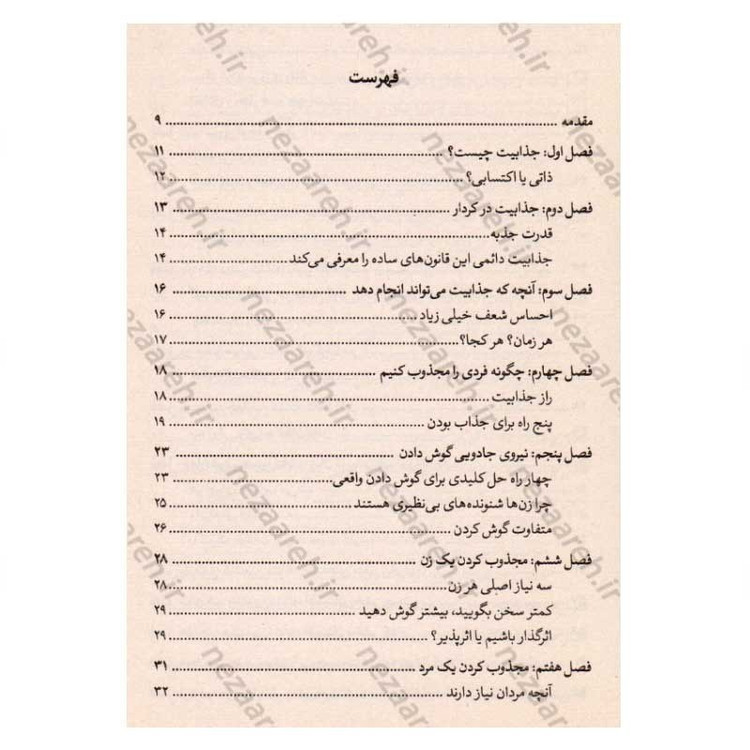 فهرست
مقدمه ........ ۹
فصل اول: جذابیت چیست؟ ........ ۱۱
ذاتی یا اکتسابی؟ ........ ۱۲
فصل دوم: جذابیت در کردار ........ ۱۳
قدرت جذبه ........ ۱۴
جذابیت دائمی این قانون‌های ساده را معرفی می‌کند ........ ۱۴
فصل سوم: آنچه که جذابیت می‌تواند انجام دهد ........ ۱۶
احساس شعف خیلی زیاد ........ ۱۶
هر زمان؟ هر کجا؟ ........ ۱۷
فصل چهارم: چگونه فردی را مجذوب کنیم ........ ۱۸
راز جذابیت ........ ۱۸
پنج راه برای جذاب بودن ........ ۱۹
فصل پنجم: نیروی جادویی گوش دادن ........ ۲۳
چهار راه حل کلیدی برای گوش دادن واقعی ........ ۲۳
چرا زن‌ها شنونده‌های بی‌نظیری هستند ........ ۲۵
متفاوت گوش کردن ........ ۲۶
فصل ششم: مجذوب کردن یک زن ........ ۲۸
سه نیاز اصلی هر زن ........ ۲۸
کمتر سخن بگویید، بیشتر گوش دهید ........ ۲۹
اثرگذار باشیم یا اثرپذیر؟ ........ ۲۹
فصل هفتم: مجذوب کردن یک مرد ........ ۳۱
آنچه مردان نیاز دارند ........ ۳۲
nezaareh.ir